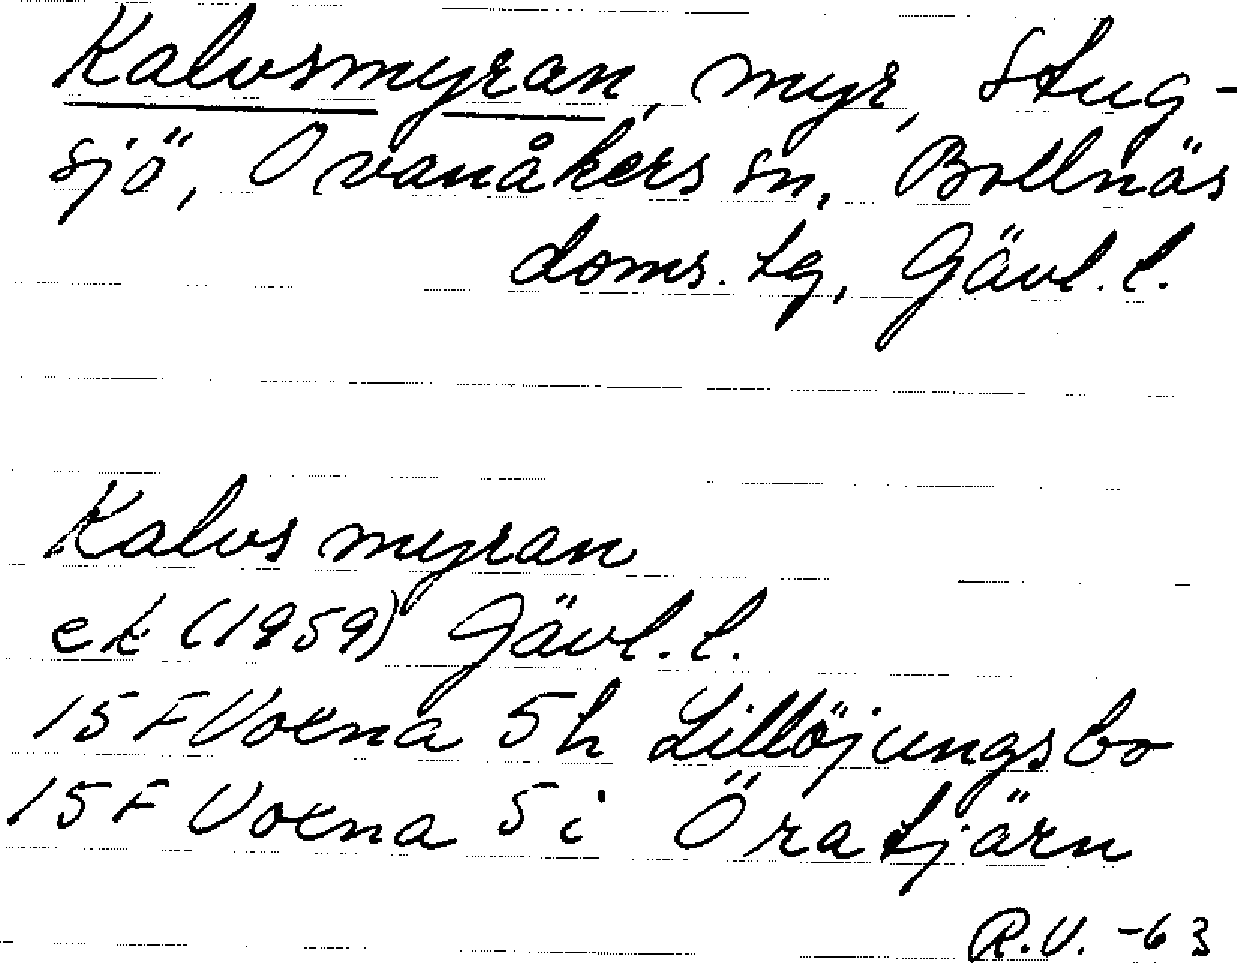 Kalvsmyran, myr, Stug-
sjö, Ovanåkers sn, Bollnäs
doms. tg, Gävl. l.
Kalvsmyran
ek (1959) Gävl. l.
15 F Voxna 5h Lillöjungsbo
15 F Voxna 5i Öratjärn
R.V. -63